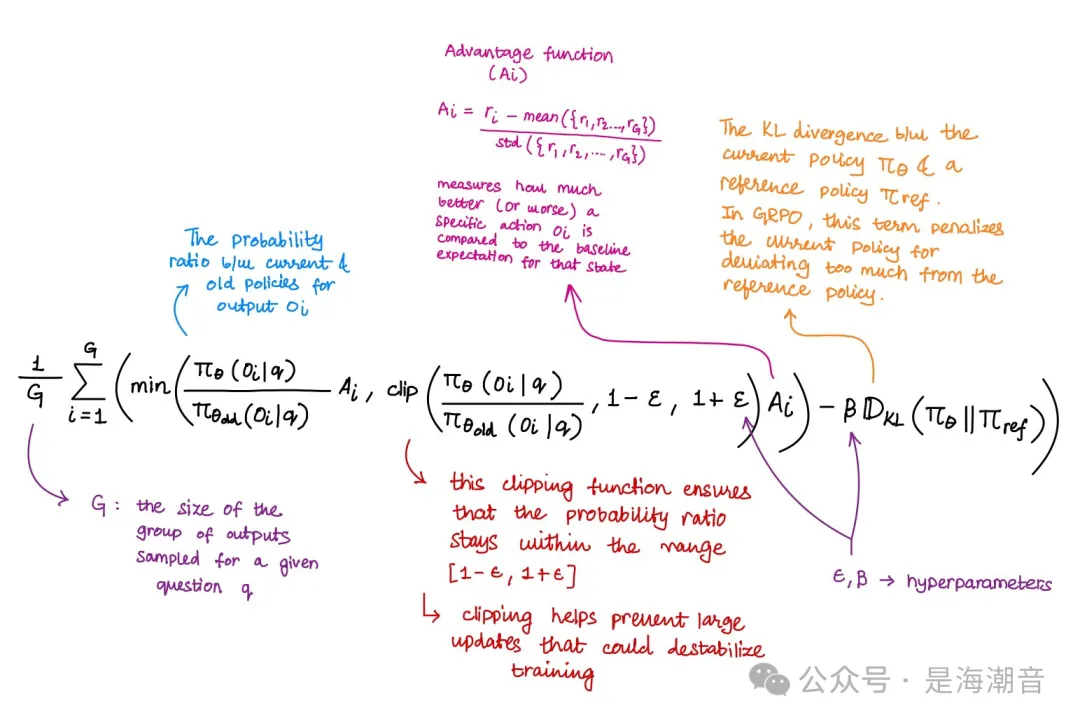 Advantage function
(Ai)
Ai = ri − mean({r1, r2..., rG})
std({r1, r2, ..., rG})
measures how much
better (or worse) a
specific action oi is
compared to the baseline
expectation for that state
The KL divergence b/w the
current policy πθ & a
reference policy πref.
In GRPO, this term penalizes
the current policy for
deviating too much from the
reference policy.
The probability
ratio b/w current &
old policies for
output oi
1/G Σ_{i=1}^{G} (min(πθ(oi|q)/πθold(oi|q) Ai, clip(πθ(oi|q)/πθold(oi|q), 1−ε, 1+ε) Ai) − β 𝔻KL(πθ || πref))
G: the size of the
group of outputs
sampled for a given
question q
this clipping function ensures
that the probability ratio
stays within the range
[1−ε, 1+ε]
clipping helps prevent large
updates that could destabilize
training
ε, β → hyperparameters
公众号 · 是海潮音